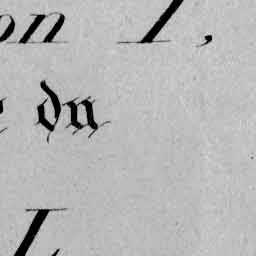 on I,
du
L